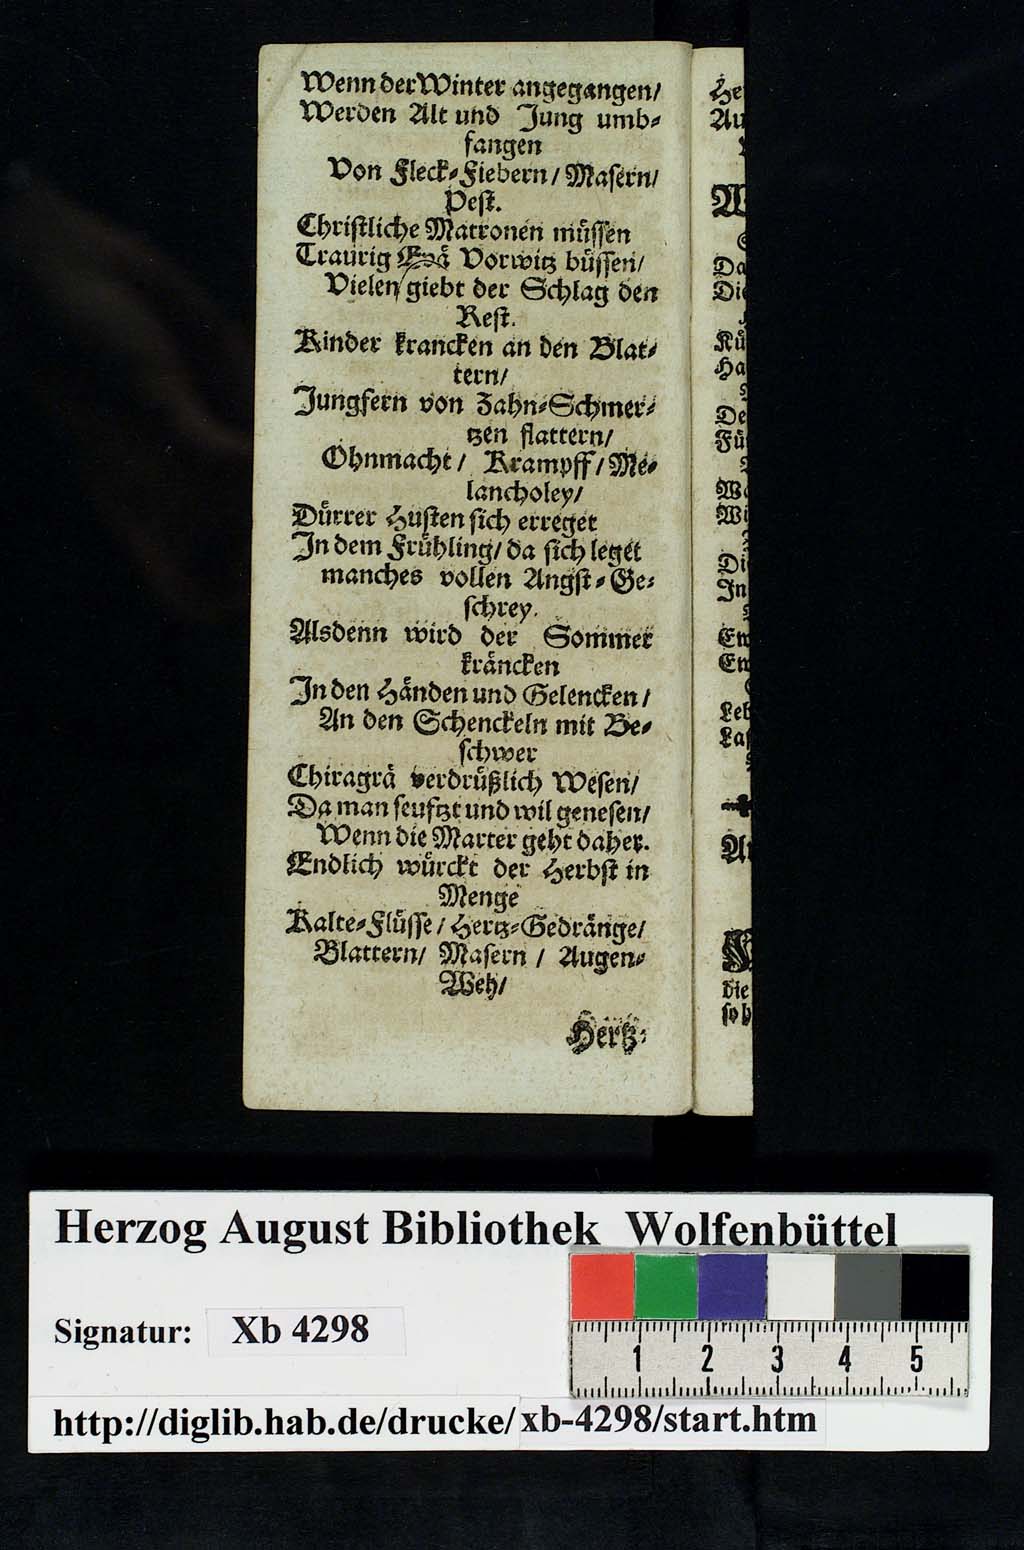 Wenn der Winter angegangen/
Werden Alt und Jung umb-
fangen
Von Fleck-Fiebern/ Masern/
Pest.
Christliche Matronen müssen
Traurig Evä Vorwitz büssen/
Vielen giebt der Schlag den
Rest.
Kinder krancken an den Blat-
tern/
Jungfern von Zahn-Schmer-
tzen flattern/
Ohnmacht/ Krampff/ Me-
lancholey/
Dürrer Husten sich erreget
In dem Frühling/ da sich leget
manches vollen Angst-Ge-
schrey.
Alsdenn wird der Sommer
kräncken
In den Händen und Gelencken/
An den Schenckeln mit Be-
schwer
Chiragrä verdrüßlich Wesen/
Da man seufftzt und wil genesen/
Wenn die Marter geht daher.
Endlich würckt der Herbst in
Menge
Kalte-Flüsse/ Hertz-Gedränge/
Blattern/ Masern/ Augen-
Weh/
Hertz-
Au
Da
Die
Kü
Ha
De
Fü
Wi
Di
In
Ew
Ew
Leb
Las
die
so h
Herzog August Bibliothek Wolfenbüttel
Signatur: Xb 4298
1 2 3 4 5
http://diglib.hab.de/drucke/xb-4298/start.htm